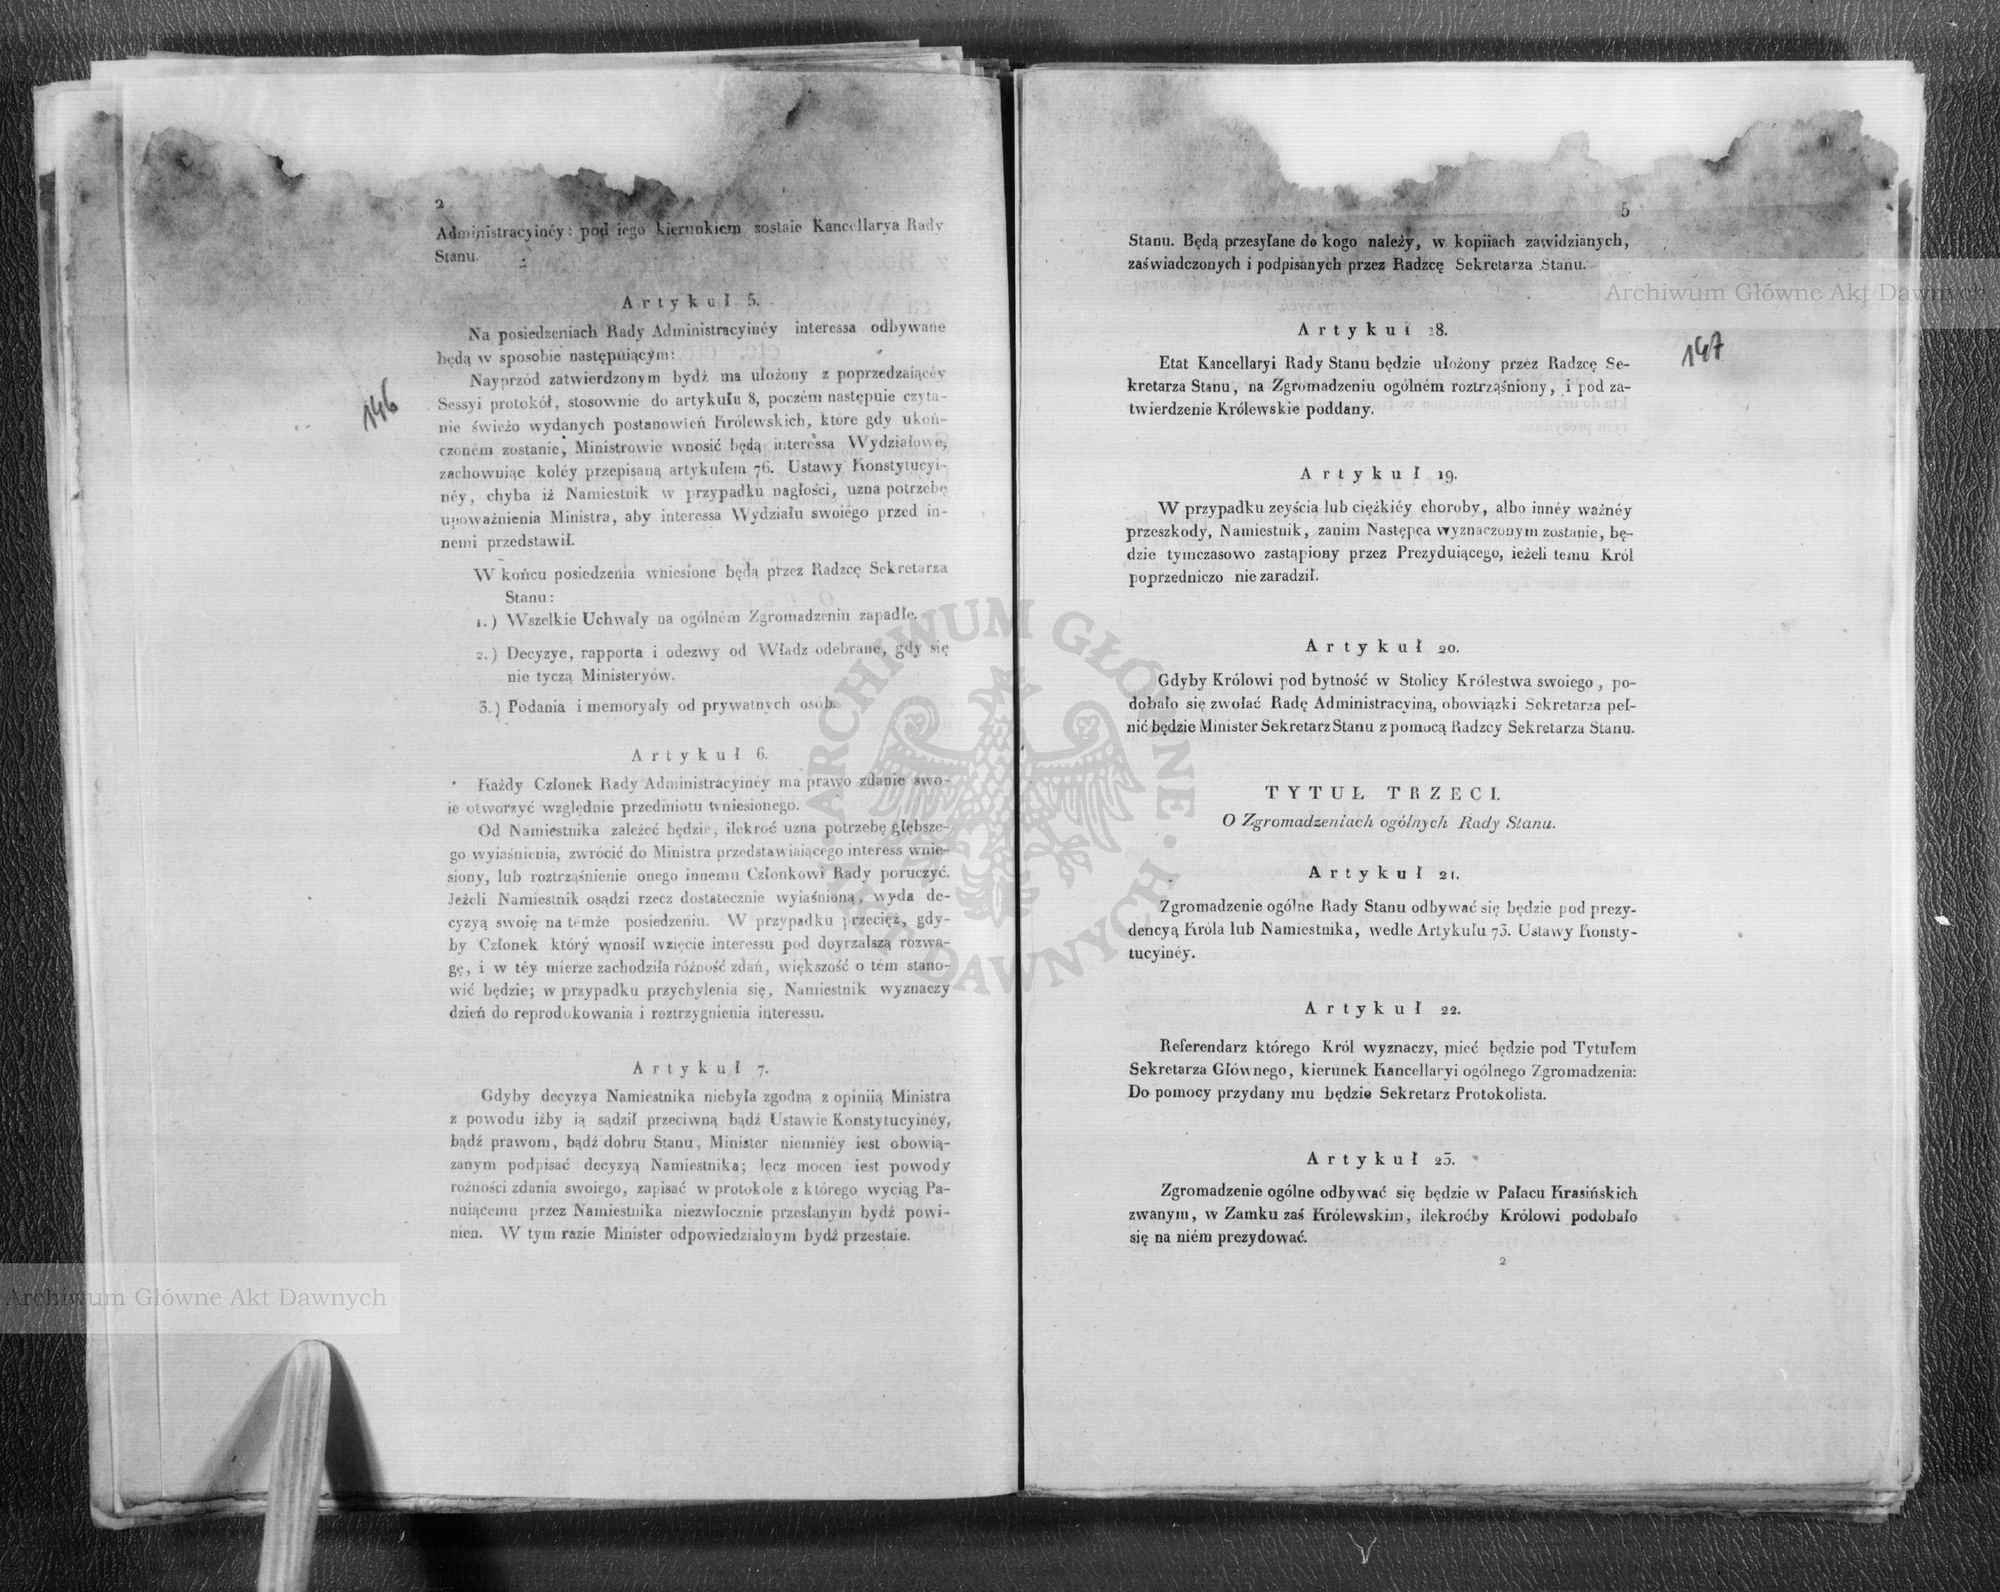 2
Administracyinéy: pod iego kierunkiem zostaie Kancellarya Rady
Stanu.
Artykuł 5.
Na posiedzeniach Rady Administracyinéy interessa odbywane
będą w sposobie następuiącym:
Nayprzód zatwierdzonym bydź ma ułożony z poprzedzaiącéy
Sessyi protokół, stosownie do artykułu 8, poczém następuie czyta-
nie świeżo wydanych postanowień Królewskich, które gdy ukoń-
czoném zostanie, Ministrowie wnosić będą interessa Wydziałowe,
zachowuiąc koléy przepisaną artykułem 76. Ustawy Konstytucyi-
néy, chyba iż Namiestnik w przypadku nagłości, uzna potrzebę
upoważnienia Ministra, aby interessa Wydziału swoiégo przed in-
nemi przedstawił.
W końcu posiedzenia wniesione będą przez Radzcę Sekretarza
Stanu:
1.) Wszelkie Uchwały na ogólném Zgromadzeniu zapadłe.
2.) Decyzye, rapporta i odezwy od Władz odebrane, gdy się
nie tyczą Ministeryów.
3.) Podania i memoryały od prywatnych osób.
Artykuł 6.
Każdy Członek Rady Administracyinéy ma prawo zdanie swo-
ie otworzyć względnie przedmiotu wniesionego.
Od Namiestnika zależeć będzie, ilekroć uzna potrzebę głębsze-
go wyiaśnienia, zwrócić do Ministra przedstawiaiącego interess wnie-
siony, lub roztrząśnienie onego innemu Członkowi Rady poruczyć.
Jeżeli Namiestnik osądzi rzecz dostatecznie wyiaśnioną, wyda de-
cyzyą swoię na témże posiedzeniu. W przypadku przecięż, gdy-
by Członek który wnosił wzięcie interessu pod doyrzalszą rozwa-
gę, i w téy mierze zachodziła różność zdań, większość o tém stano-
wić będzie; w przypadku przychylenia się, Namiestnik wyznaczy
dzień do reprodukowania i roztrzygnienia interessu.
Artykuł 7.
Gdyby decyzya Namiestnika niebyła zgodną z opiniią Ministra
z powodu iżby ią sądził przeciwną bądź Ustawie Konstytucyinéy,
bądź prawom, bądź dobru Stanu, Minister niemniéy iest obowią-
zanym podpisać decyzyą Namiestnika; lecz mocen iest powody
rożności zdania swoiego, zapisać w protokole z którego wyciąg Pa-
nuiącemu przez Namiestnika niezwłocznie przesłanym bydź powi-
nien. W tym razie Minister odpowiedzialnym bydź przestaie.
146
5
Stanu. Będą przesyłane do kogo należy, w kopiiach zawidzianych,
zaświadczonych i podpisanych przez Radzcę Sekretarza Stanu.
Artykuł 18.
Etat Kancellaryi Rady Stanu będzie ułożony przez Radzcę Se-
kretarza Stanu, na Zgromadzeniu ogólném roztrząśniony, i pod za-
twierdzenie Królewskie poddany.
Artykuł 19.
W przypadku zeyścia lub ciężkiéy choroby, albo innéy ważnéy
przeszkody, Namiestnik, zanim Następca wyznaczonym zostanie, bę-
dzie tymczasowo zastąpiony przez Prezyduiącego, ieżeli temu Król
poprzedniczo nie zaradził.
Artykuł 20.
Gdyby Królowi pod bytność w Stolicy Królestwa swoiego, po-
dobało się zwołać Radę Administracyiną, obowiązki Sekretarza peł-
nić będzie Minister Sekretarz Stanu z pomocą Radzcy Sekretarza Stanu.
TYTUŁ TRZECI.
O Zgromadzeniach ogólnych Rady Stanu.
Artykuł 21.
Zgromadzenie ogólne Rady Stanu odbywać się będzie pod prezy-
dencyą Króla lub Namiestnika, wedle Artykułu 73. Ustawy Konsty-
tucyinéy.
Artykuł 22.
Referendarz którego Król wyznaczy, mieć będzie pod Tytułem
Sekretarza Głównego, kierunek Kancellaryi ogólnego Zgromadzenia:
Do pomocy przydany mu będzie Sekretarz Protokolista.
Artykuł 23.
Zgromadzenie ogólne odbywać się będzie w Pałacu Krasińskich
zwanym, w Zamku zaś Królewskim, ilekroćby Królowi podobało
się na niém prezydować.
2
147
Archiwum Główne Akt Dawnych
Archiwum Główne Akt Dawnych
ARCHIWUM GŁÓWNE AKT DAWNYCH